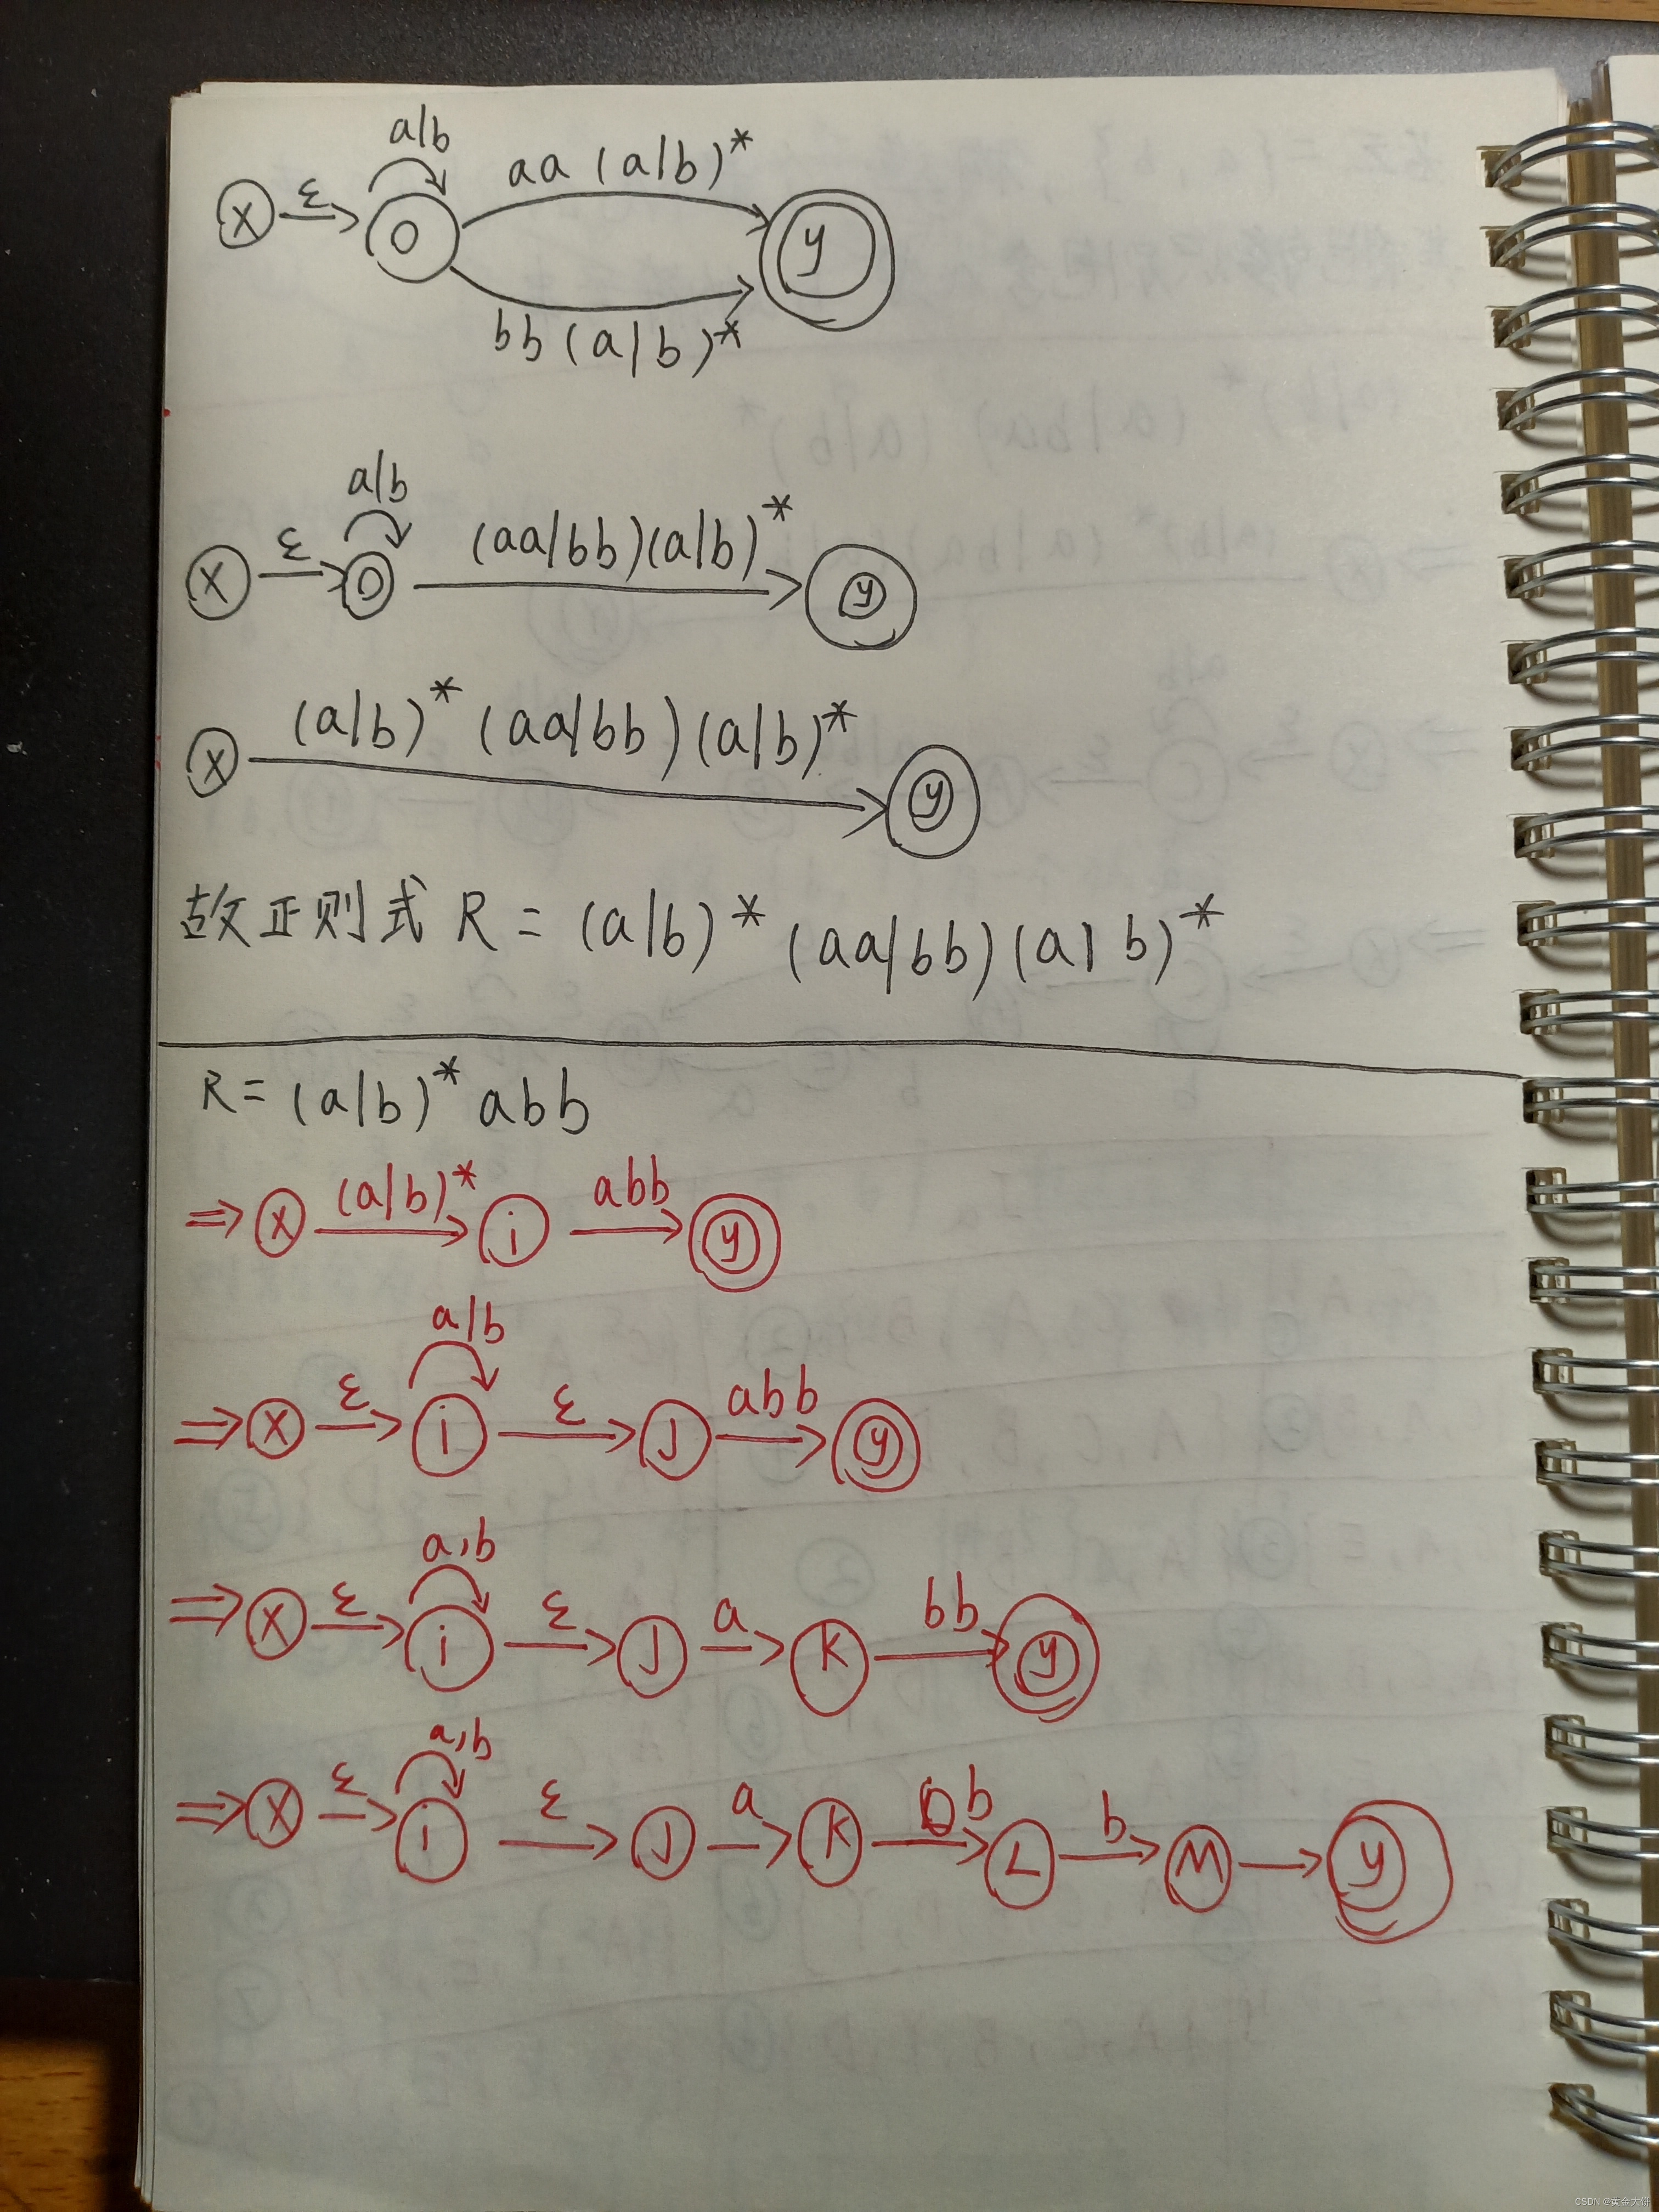 a|b
aa (a|b)*
X ε 0 y
bb (a|b)*
a|b
X ε 0 (aa|bb)(a|b)* y
X (a|b)* (aa|bb) (a|b)* y
故正则式 R = (a|b)* (aa|bb) (a|b)*
R = (a|b)* abb
⇒ X (a|b)* i abb y
a|b
⇒ X ε i ε J abb y
a,b
⇒ X ε i ε J a K bb y
a,b
⇒ X ε i ε J a K b L b M y
CSDN @黄金大饼